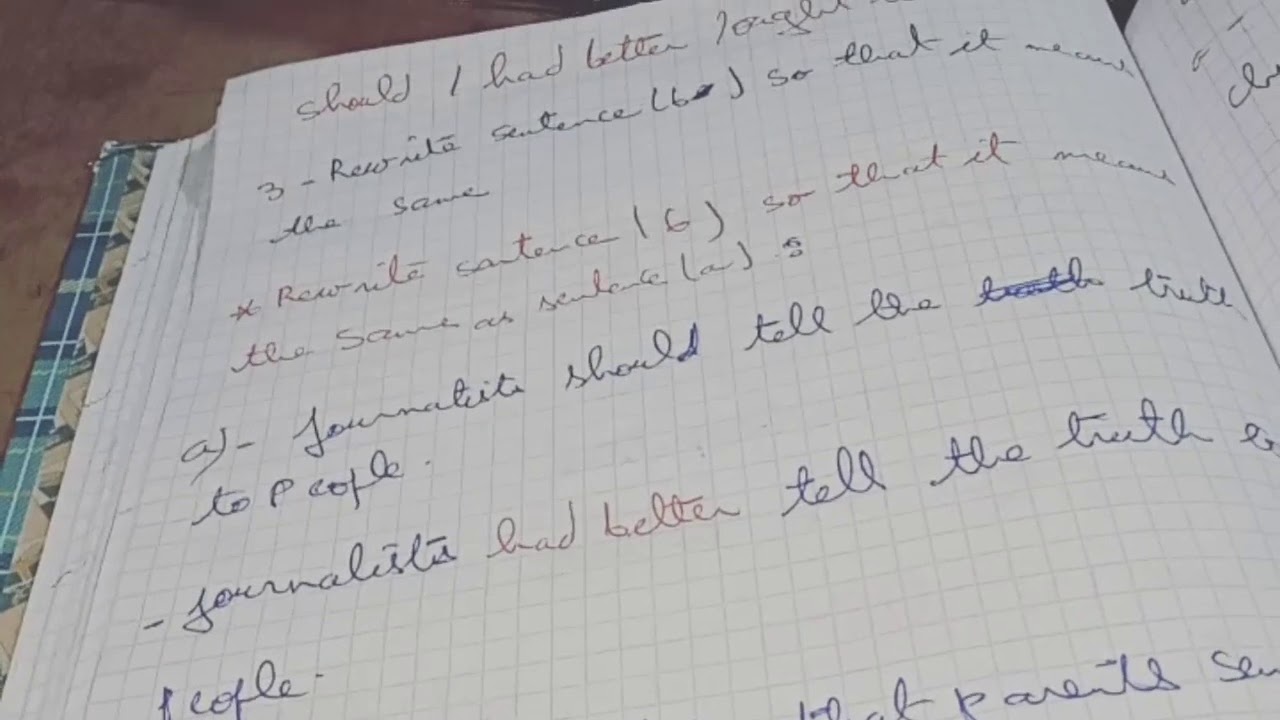 should / had better / ought
3 - Rewrite sentence (b) so that it means
the same
* Rewrite sentence (b) so that it means
the same as sentence (a) :
a) - Journalists should tell the truth
to people.
- Journalists had better tell the truth
people.
that parents